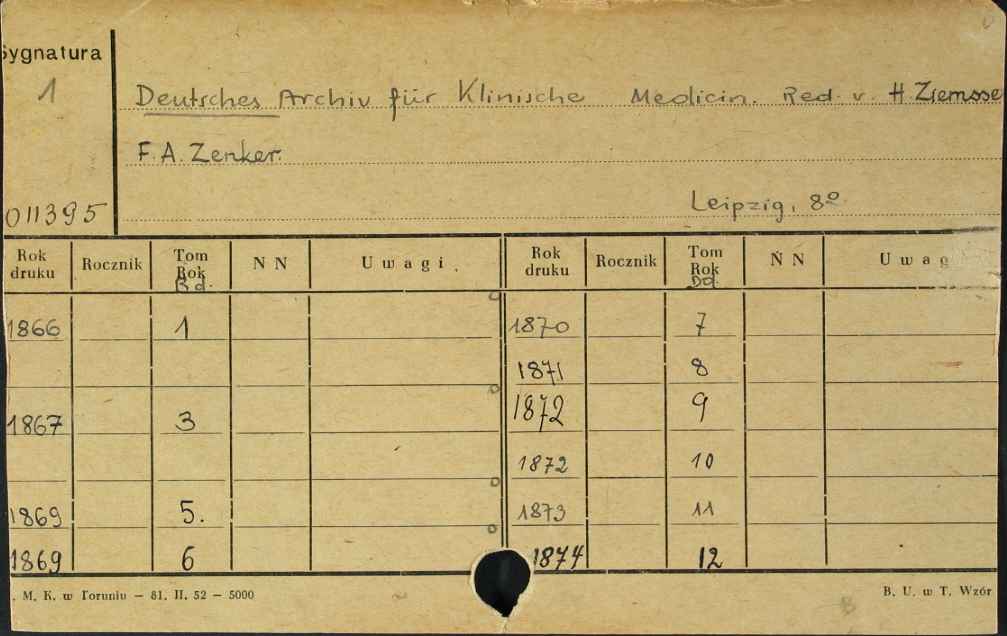 Sygnatura
1
Deutsches Archiv für Klinische Medicin. Red. v. H. Ziemsse
F. A. Zenker.
011395
Leipzig, 8º
Rok druku Rocznik Tom Rok Bd. N N Uwagi. Rok druku Rocznik Tom Rok Bd. N N Uwag
1866 1 1870 7
1871 8
1867 3 1872 9
1872 10
1869 5. 1873 11
1869 6 1874 12
. M. K. w Toruniu — 81. II. 52 — 5000 B. U. w T. Wzór